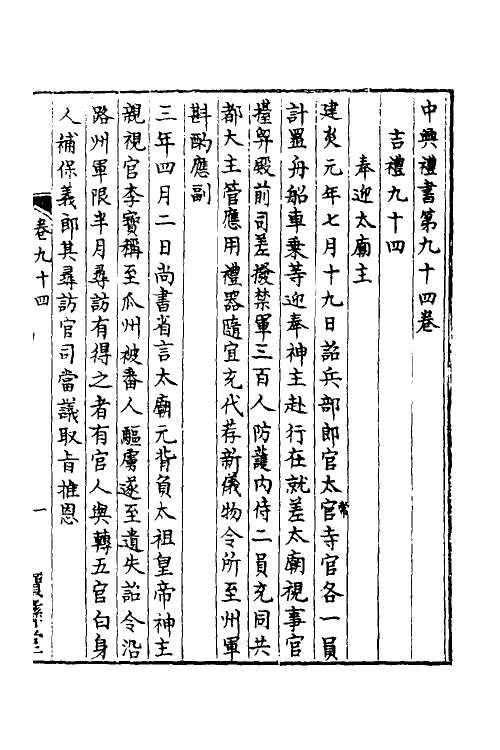 中興禮書第九十四卷
吉禮九十四
奉迎太廟主
建炎元年七月十九日詔兵部郎官太常官寺官各一員
計置舟船車乗等迎奉神主赴行在就差太廟視事官
擡舁殿前司差撥禁軍三百人防護内侍二員充同共
都大主管應用禮器隨宜充代荐新儀物令所至州軍
斟酌應副
三年四月二日尚書省言太廟元背負太祖皇帝神主
親視官李寳稱至瓜州被番人驅虜遂至遺失詔令沿
路州軍限半月尋訪有得之者有官人與轉五官白身
人補保義郎其尋訪官司當議取㫖推恩
卷九十四
一